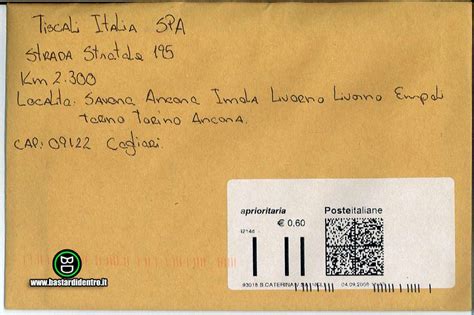 Tiscali Italia SPA
STRADA Stratale 195
Km 2.300
Località: Savona Ancona Imola Livorno Livorno Empoli
Torino Torino Ancona.
CAP: 09122 Cagliari.
aprioritaria
€ 0,60
Posteitaliane
04.09.2006
BD
www.bastardidentro.it